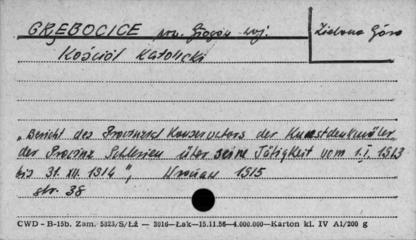 GRĘBOCICE pow. Głogów woj. Zielona Góra
Kościół Katolicki
„Bericht des Provinzial Konservators der Kunstdenkmäler
der Provinz Schlesien über seine Tätigkeit vom 1.I. 1913
bis 31. XII. 1914", Wrocław 1915
str. 38
CWD - B-15b. Zam. 5323/S/Łż — 3016—Łak—15.11.56—4.000.000—Karton kl. IV A1/200 g